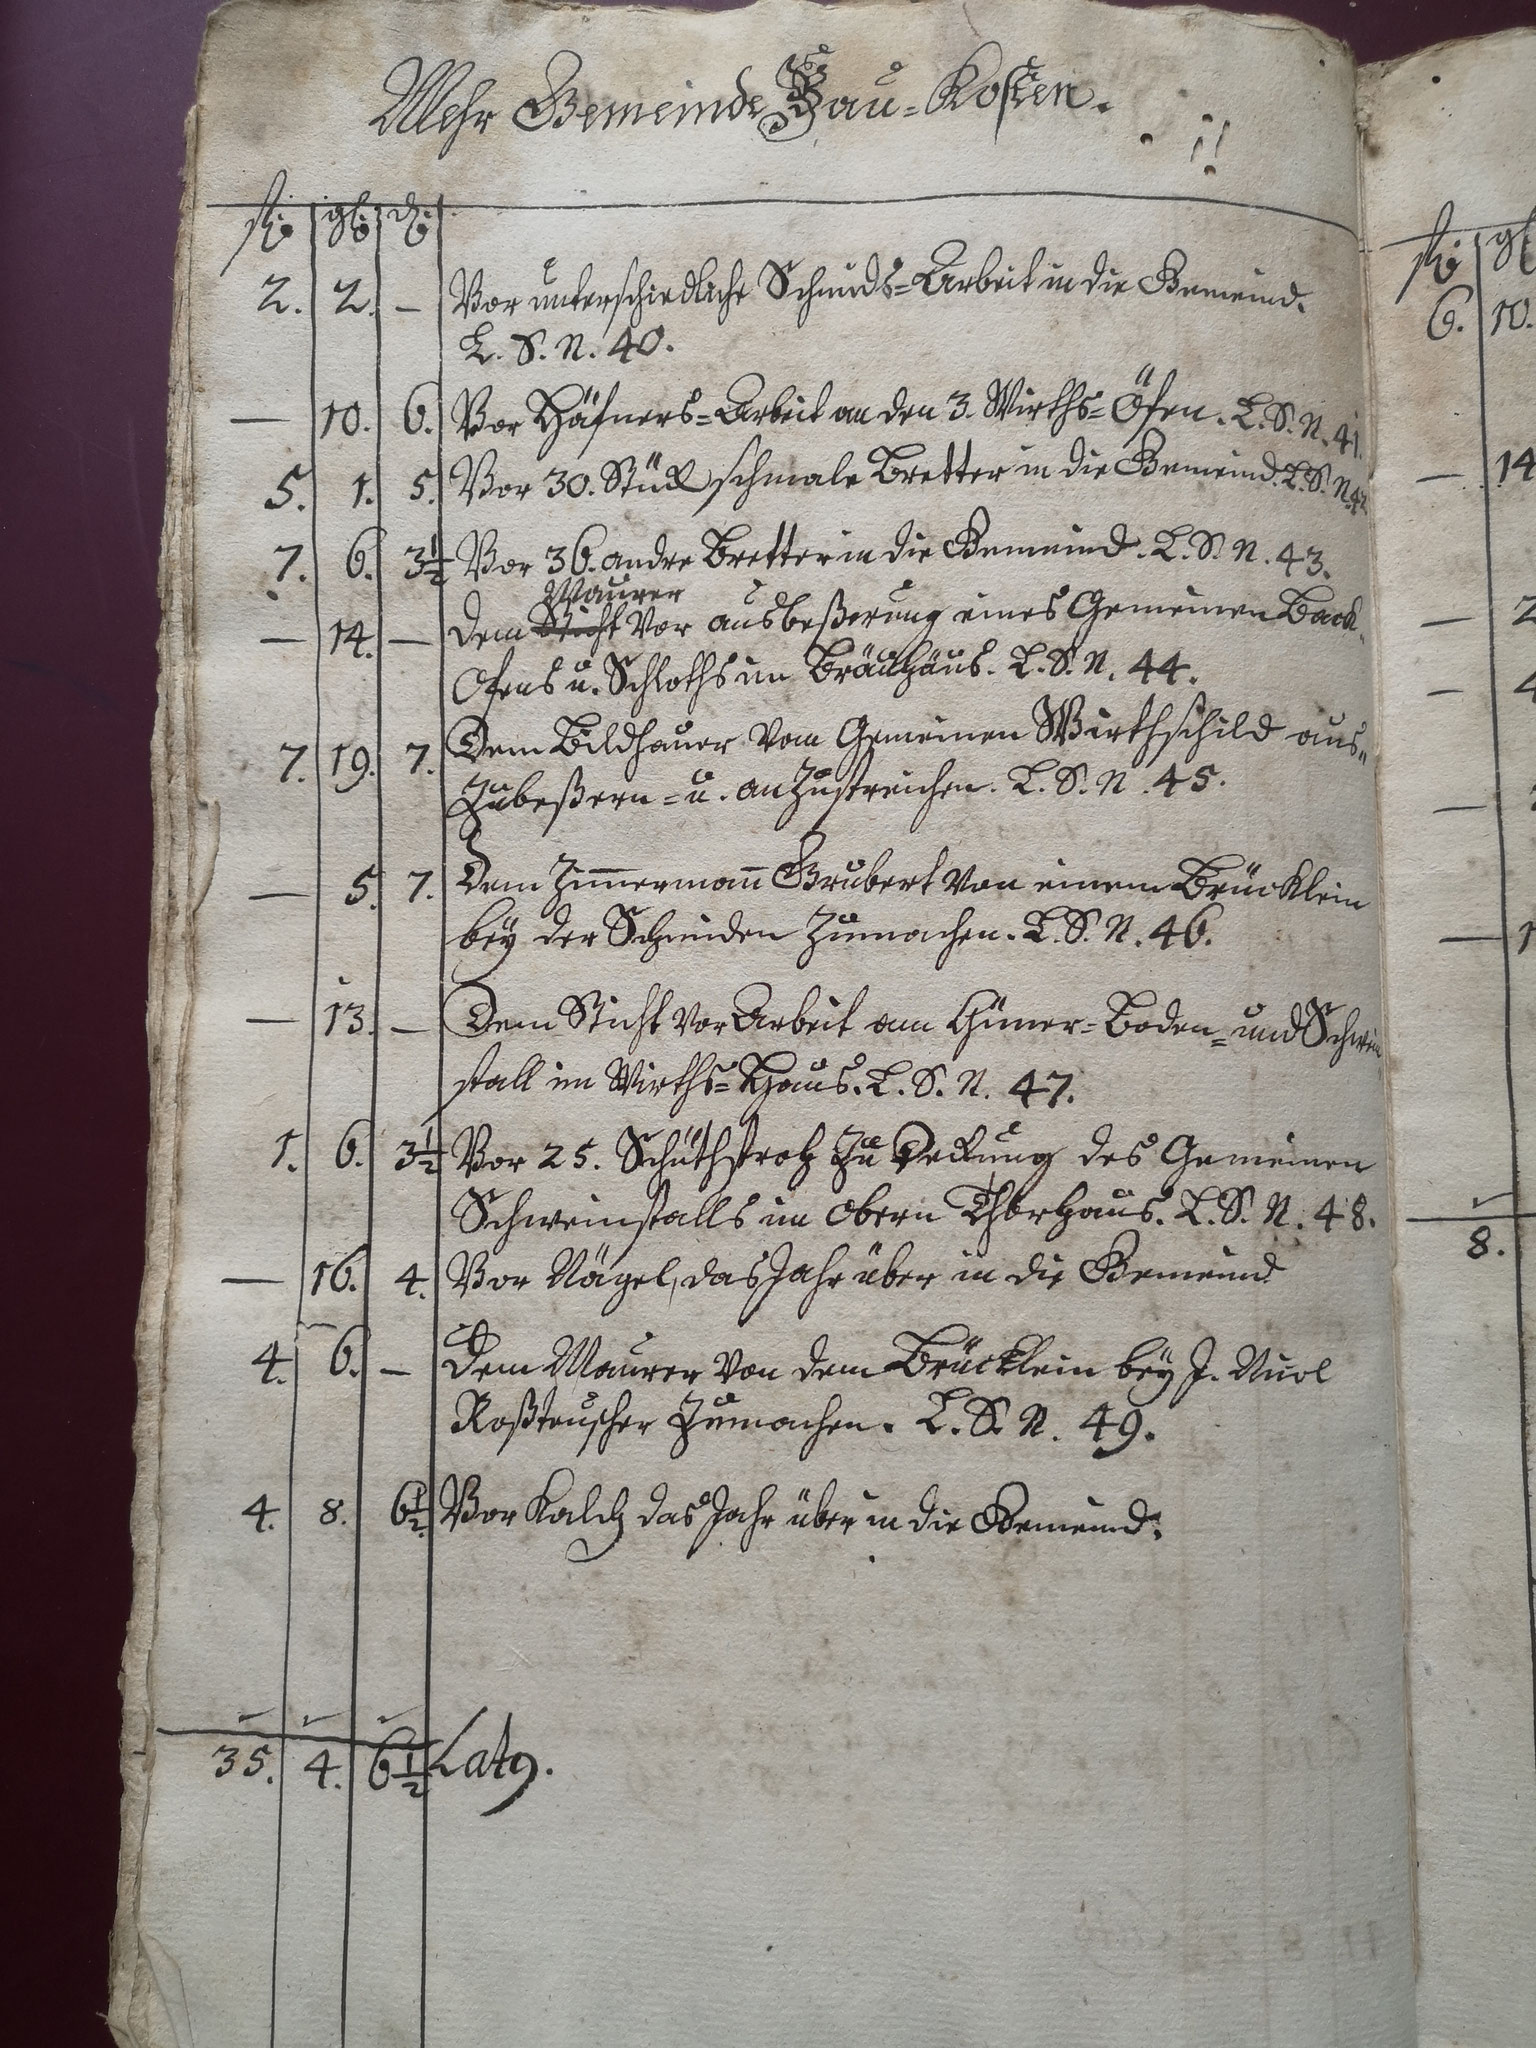 Mehr Gemeinde Bau=Kosten.
fl. gl. d.
2. 2. — Vor unterschiedliche Schmids=Arbeit in die Gemeind.
L. S. N. 40.
— 10. 6. Vor Häfners=Arbeit an den 3. Wirths=Öfen. L. S. N. 41.
5. 1. 5. Vor 30. Stück schmale Bretter in die Gemeind. L. S. N. 42
7. 6. 3½ Vor 36. andre Bretter in die Gemeind. L. S. N. 43.
Maurer
— 14. — Dem Sticht Vor ausbeßerung eines Gemeinen Back=
Ofens u. Schloths im Bräuhaus. L. S. N. 44.
7. 19. 7. Dem Bildhauer Vom Gemeinen Wirthschild aus=
Zubeßern= u. anZustreichen. L. S. N. 45.
— 5. 7. Dem Zim̄erman̄ Grubert Von einem Brücklein
bey der Schmiden Zumachen. L. S. N. 46.
— 13. — Dem Sticht Vor Arbeit am Hüner=Boden= und Schwein
stall im Wirths=Haus. L. S. N. 47.
1. 6. 3½ Vor 25. Schüthstroh Zu Deckung des Gemeinen
Schweinstalls im Obern Thorhaus. L. S. N. 48.
— 16. 4. Vor Nägel, das Jahr über in die Gemeind
4. 6. — Dem Maurer Von dem Brücklein bey J. Nicol
Roßteuscher Zumachen. L. S. N. 49.
4. 8. 6½. Vor Kalch das Jahr über in die Gemeind.
35. 4. 6½ Lat9.
fl. gl
6. 10.
— 14
— 2
— 4
—
— 1
8.